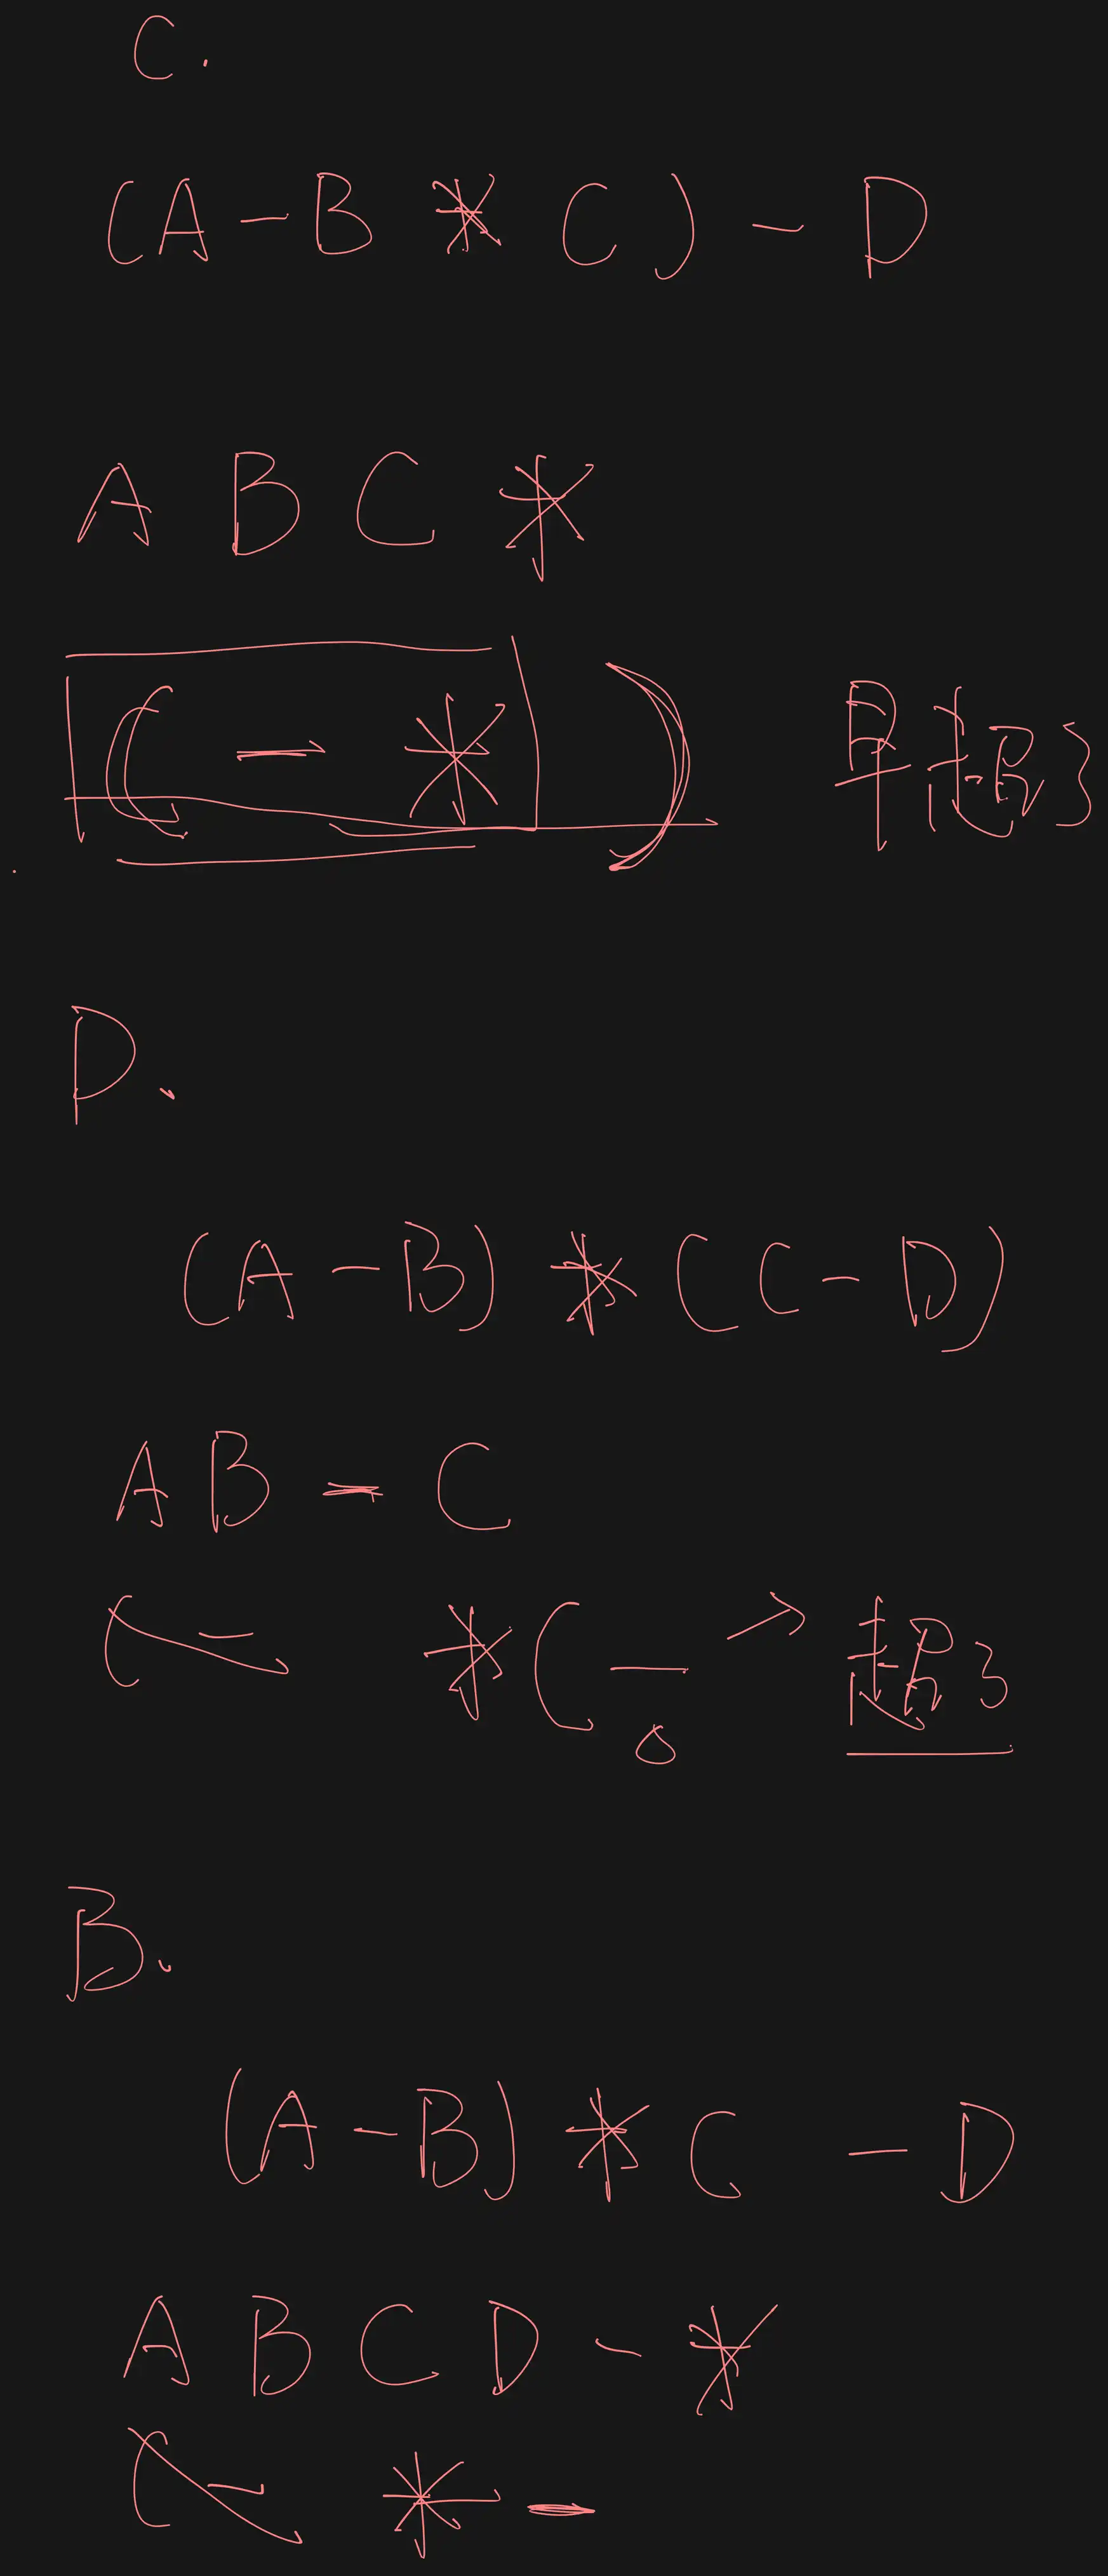 C.
(A-B*C)-D
ABC*
(-*) 早超了
D.
(A-B)*(C-D)
AB-C
(- *(- → 超了
B.
(A-B)*C-D
ABCD-*
(- *-